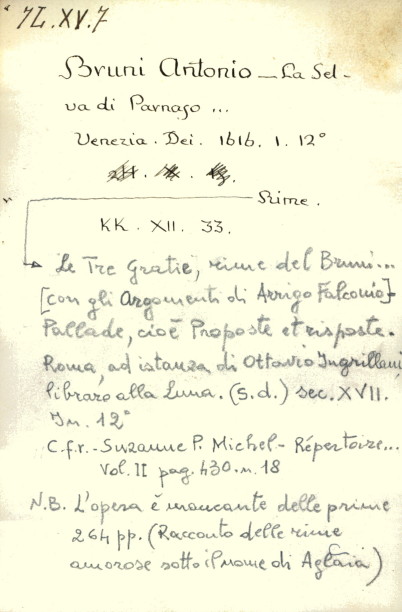 7L.XV.7
Bruni Antonio – La Sel-
va di Parnaso ...
Venezia. Dei. 1616. 1. 12°
Rime.
KK. XII. 33.
Le Tre Gratie, rime del Bruni...
[con gli Argomenti di Arrigo Falconio]-
Pallade, cioè Proposte et risposte.
Roma, ad istanza di Ottavio Ingrillani
libraro alla Luna. (s.d.) sec. XVII.
In. 12°
C.f.r. - Suzanne P. Michel - Répertoire...
Vol. II pag. 430. n. 18
N.B. L'opera è mancante delle prime
264 pp. (Racconto delle rime
amorose sotto il nome di Aglaia)